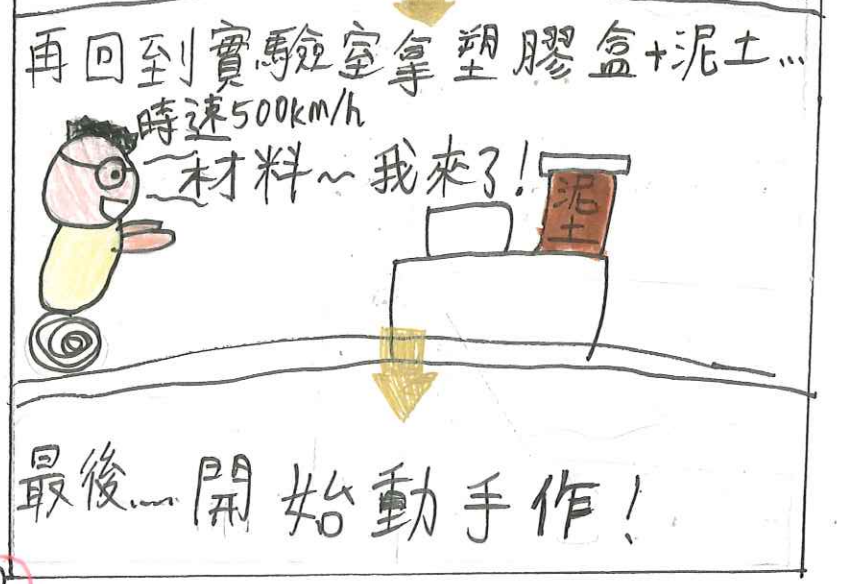 再回到實驗室拿塑膠盒+泥土...
時速500km/h
材料~我來了!
泥土
最後......開始動手作!